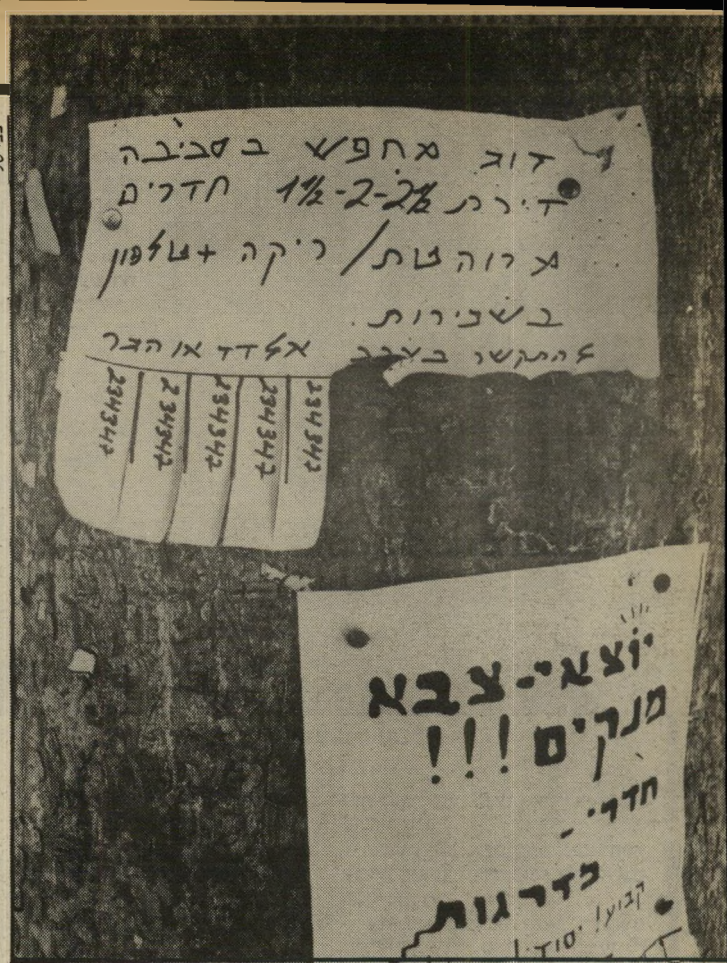 זוג מחפש בסביבה
דירת 2½-2-1½ חדרים
מרוהטת/ריקה + טלפון
בשכירות.
להתקשר בערב אלדד או הגר
234347
234347
234347
234347
234347
יוצאי-צבא
מנקים!!!
חדרי-
מדרגות
קבוע! יסודי!